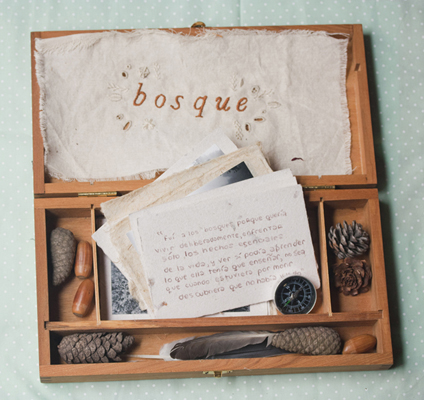 bosque
"Fui a los bosques porque quería
vivir deliberadamente, enfrentar
sólo los hechos esenciales
de la vida, y ver si podía aprender
lo que ella tenía que enseñar, no sea
que cuando estuviera por morir
descubriera que no había